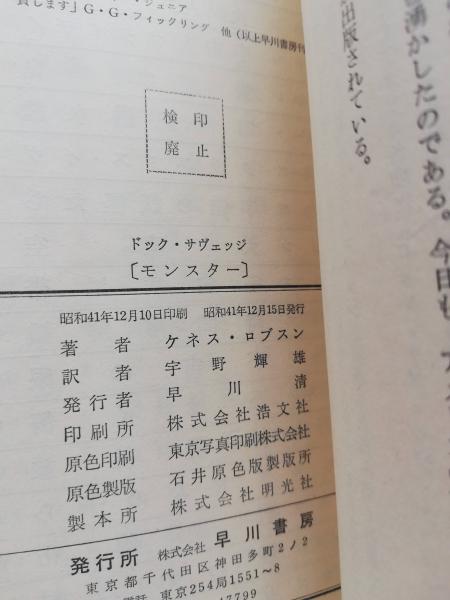 貸します」G・G・フィックリング 他(以上早川書房刊
検印
廃止
ドック・サヴェッジ
〔モンスター〕
昭和41年12月10日印刷 昭和41年12月15日発行
著者 ケネス・ロブスン
訳者 宇野輝雄
発行者 早川清
印刷所 株式会社浩文社
原色印刷 東京写真印刷株式会社
原色製版 石井原色版製版所
製本所 株式会社明光社
発行所 株式会社 早川書房
東京都千代田区神田多町2ノ2
電話 東京254局1551〜8
47799
湧かしたのである。今日も
出版されている。